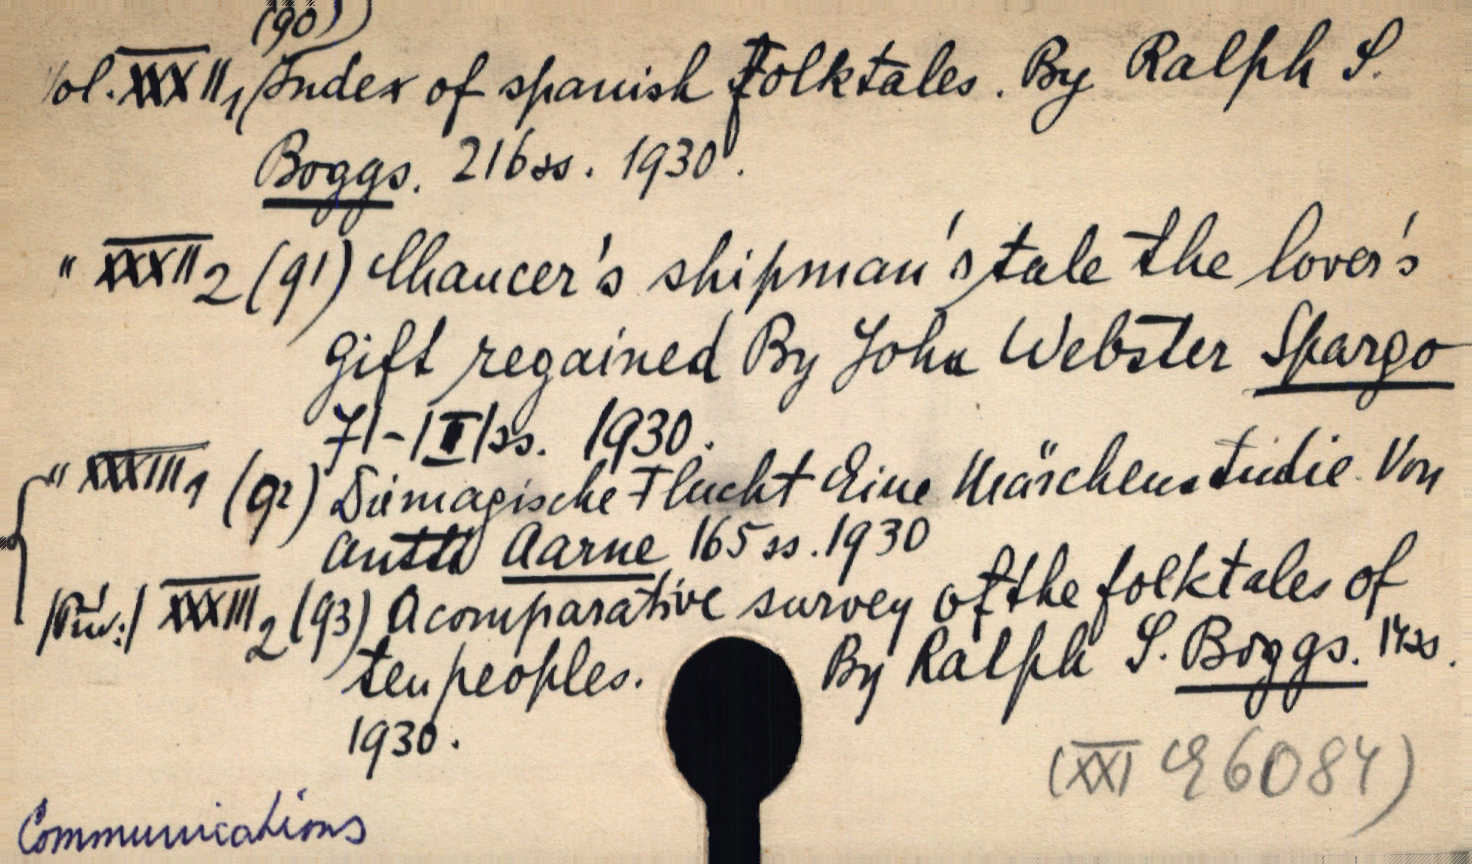 (90)
Vol. XXXII, Index of spanish Folktales. By Ralph S.
Boggs. 216 ss. 1930.
" XXXII 2 (91) Chaucer's shipman's tale the lover's
gift regained By John Webster Spargo
71-|II|ss. 1930.
" XXXIII 1 (92) Die magische Flucht Eine Märchenstudie. Von
Antti Aarne 165 ss. 1930
XXXIII 2 (93) A comparative survey of the folktales of
ten peoples. By Ralph S. Boggs. 14 ss.
1930.
(XXI E 6084)
Communications